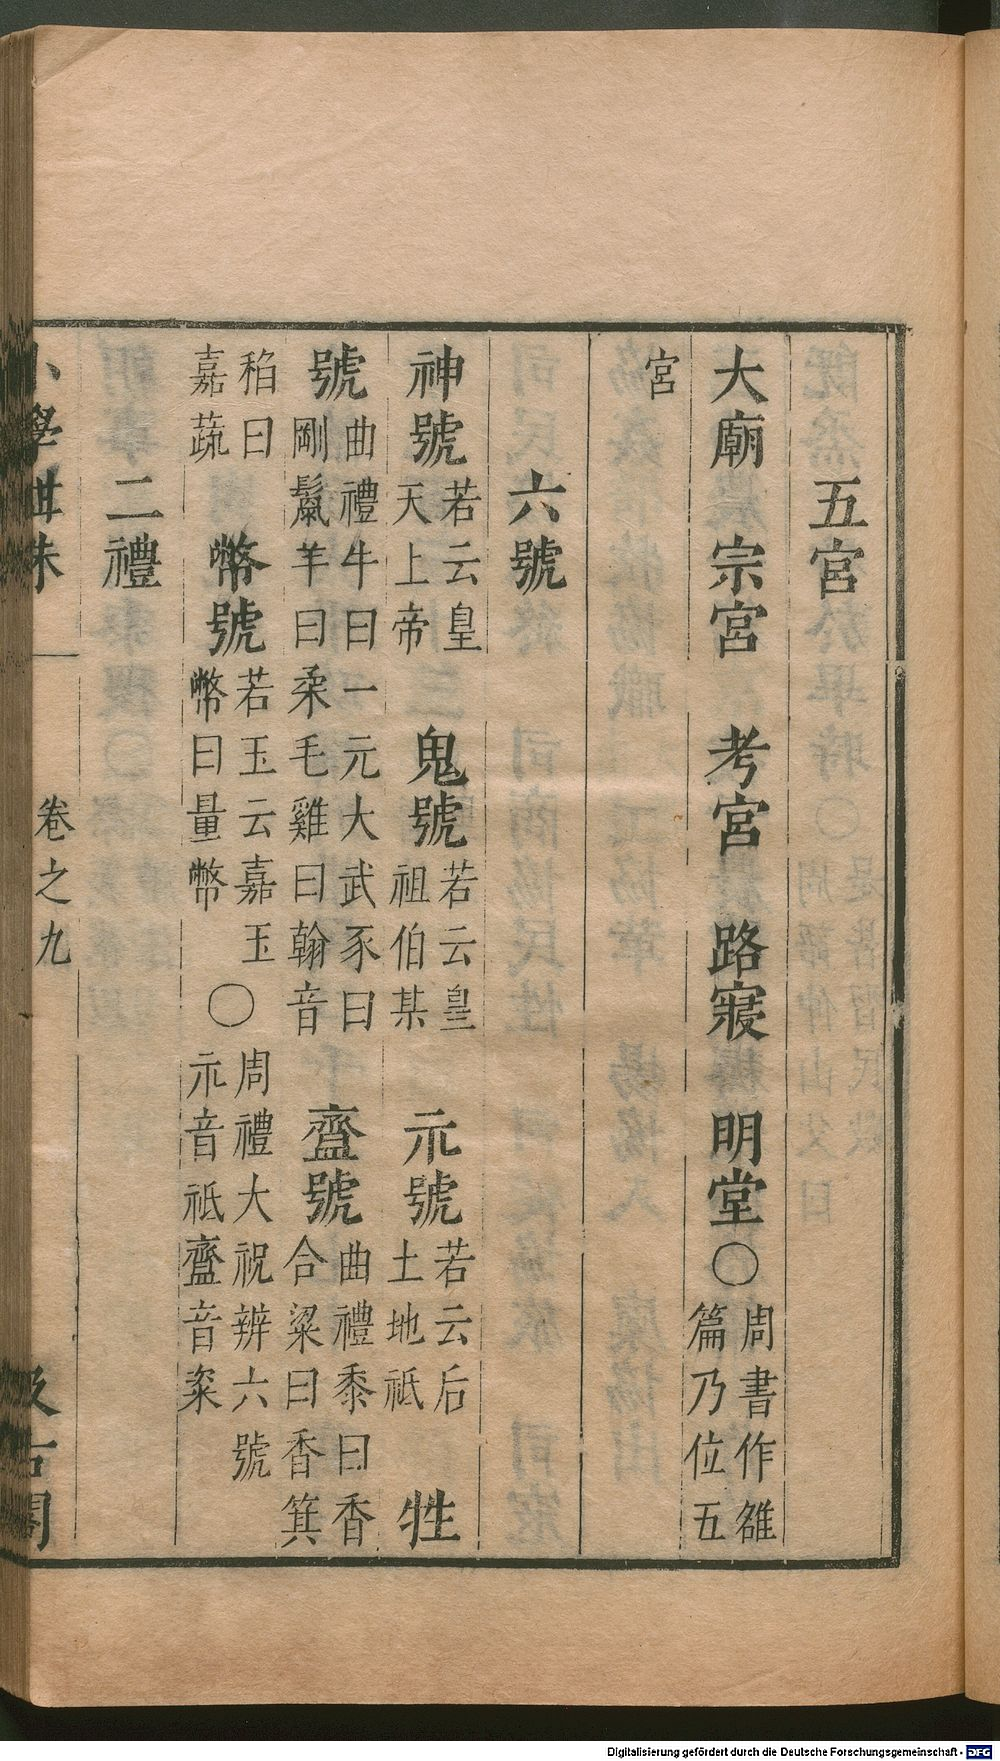 五宮
大廟 宗宮 考宮 路寢 明堂〇周書作雒
篇乃位五
宮
六號
神號若云皇
天上帝 鬼號若云皇
祖伯某 示號若云后
土地祇 牲
號曲禮牛曰一元大武豕曰
剛鬣羊曰柔毛雞曰翰音 齍號曲禮黍曰香
合粱曰香箕
稻曰
嘉蔬 幣號若玉云嘉玉
幣曰量幣 〇周禮大祝辨六號
示音祇齍音粢
二禮
小學紺珠 卷之九 汲古閣
Digitalisierung gefördert durch die Deutsche Forschungsgemeinschaft - DFG